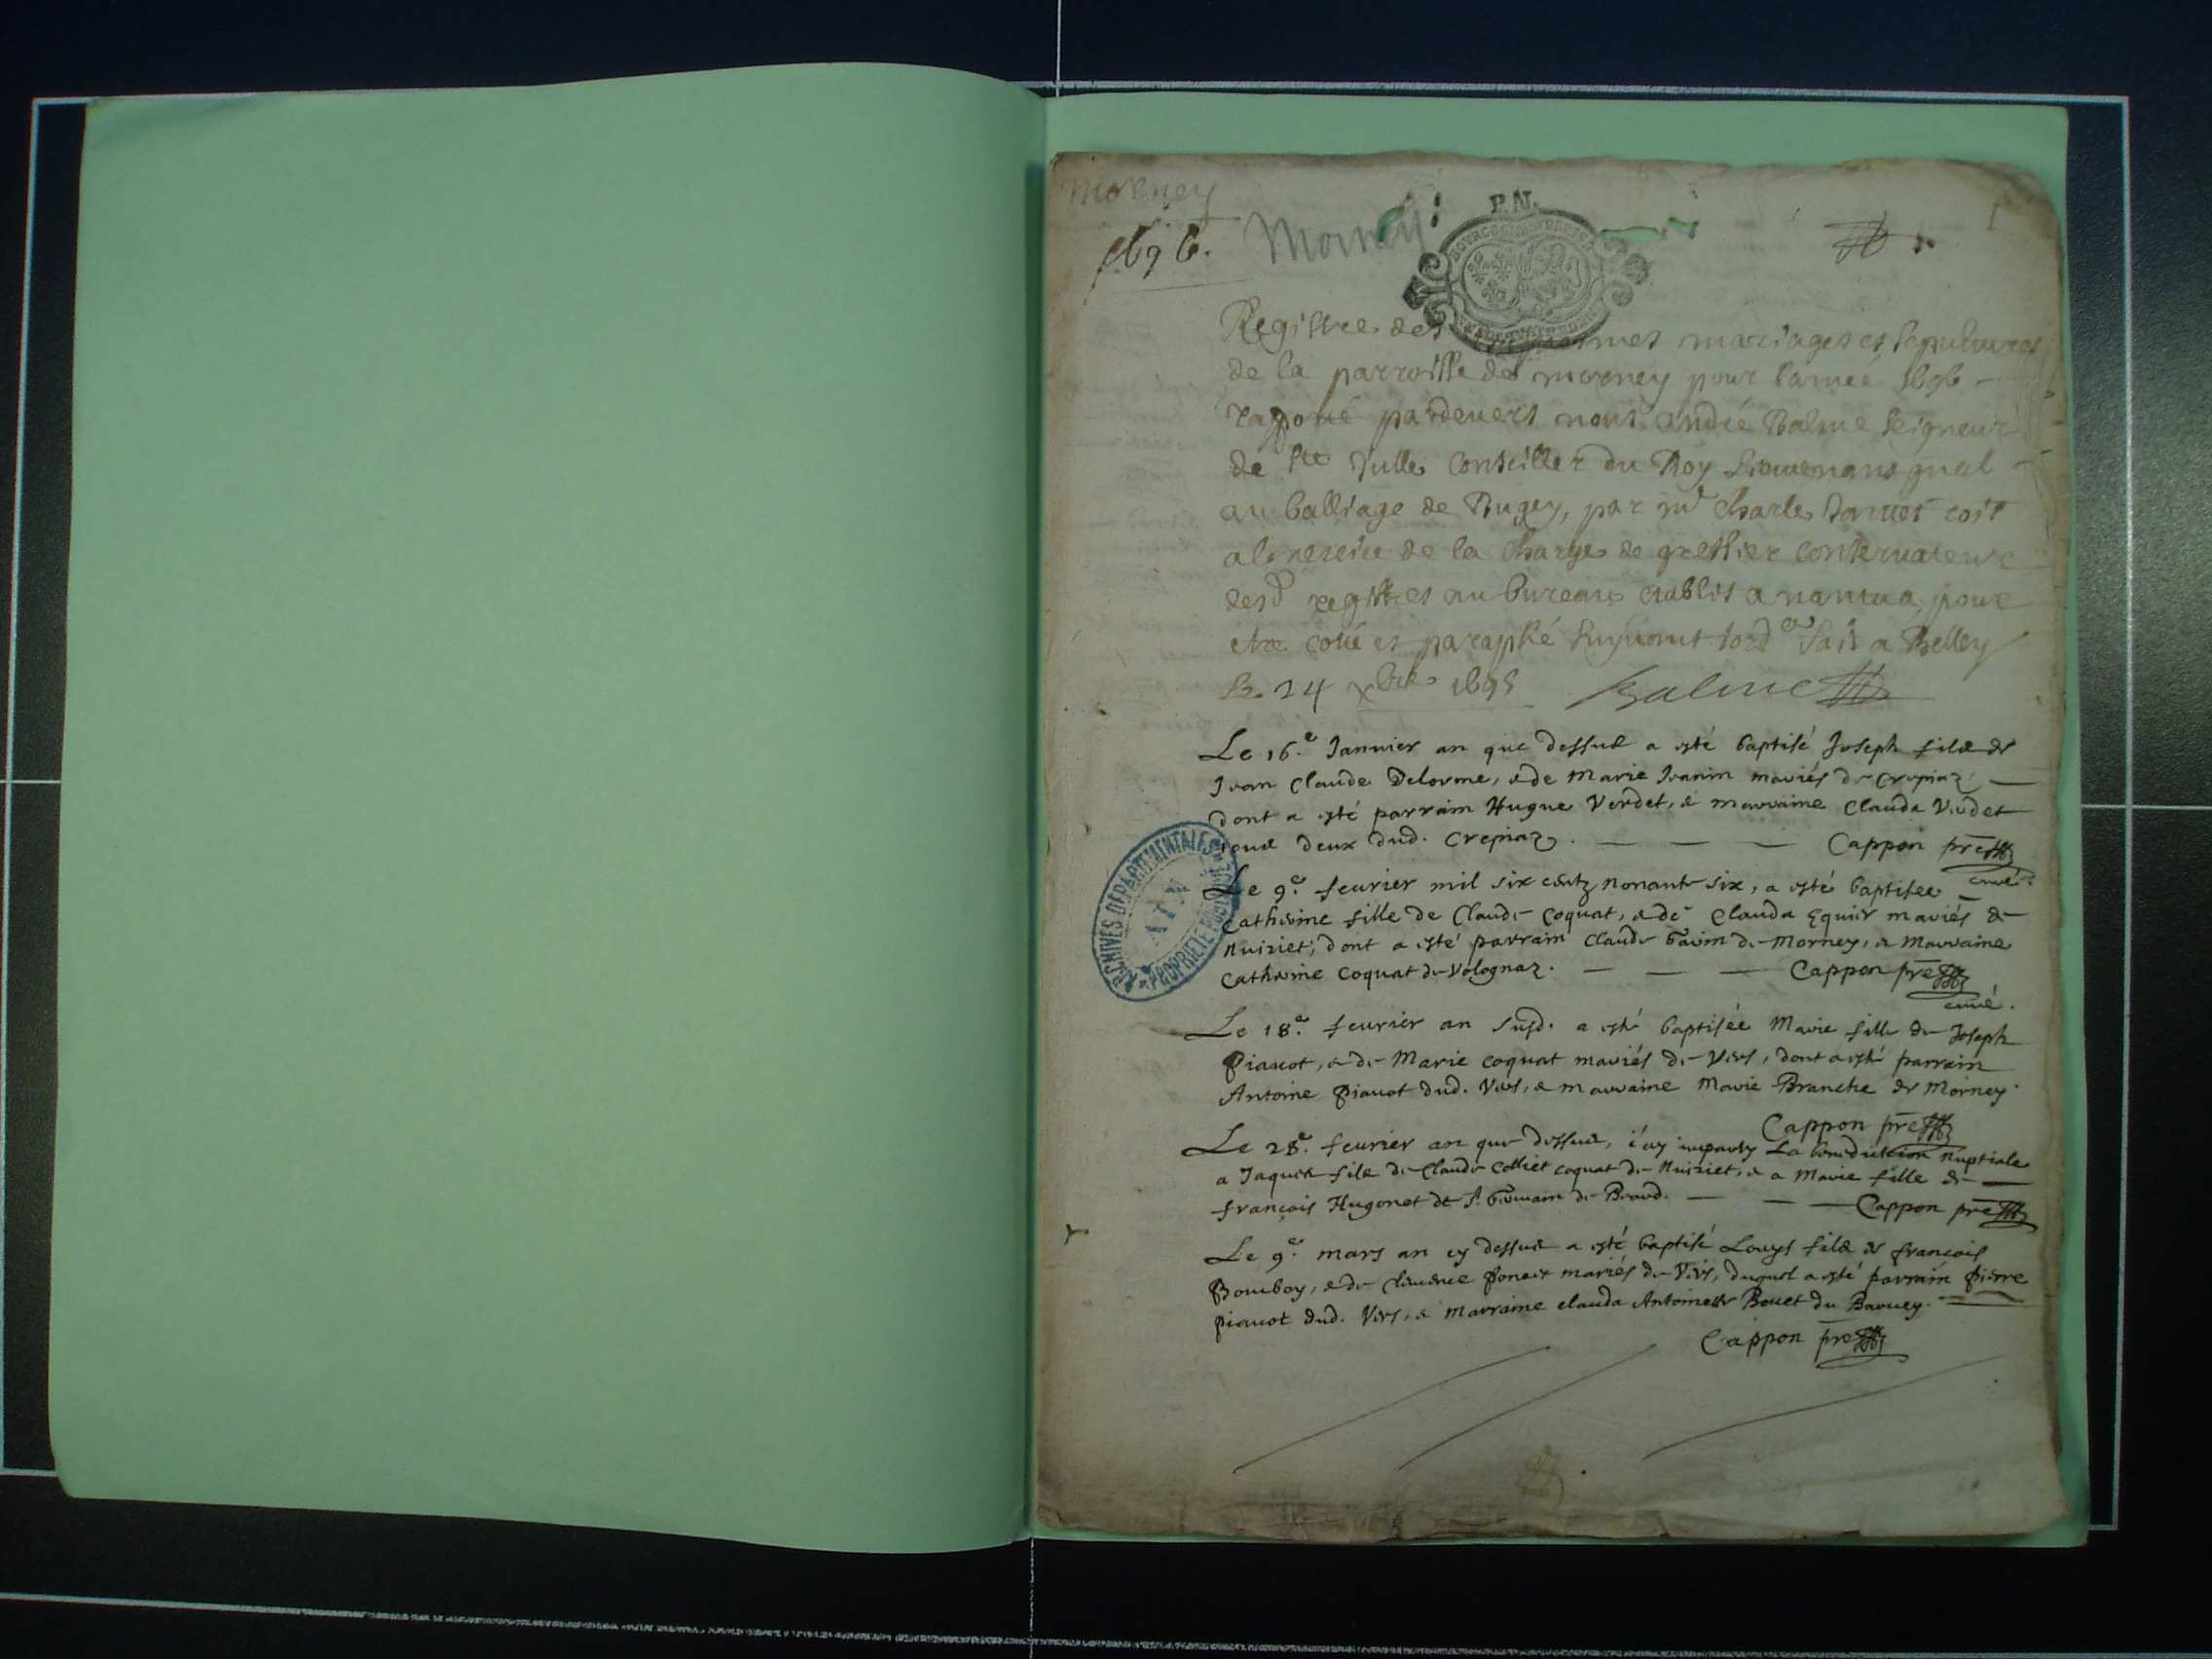 morney
1696.
Mornay
P.N.
1
Registre des mariages et sepultures
de la parroisse de morney pour l'année 1696
raporté pardevers nous andré Balme seigneur
de Ste Julle Conseiller du Roy Lieutenant gnal
au balliage de Bugey, par Charles
de la charge de greffier conservateur
desd registres au bureau establis a nantua pour
etre coté et paraphé suyvant lord fait a Belley
le 24 xbre 1695 Balme
Le 16.e Janvier an que dessus a esté baptisé Joseph fils de
Jean Claude Delorme, & de Marie Jeanin mariés de Crepiaz
dont a esté parrain Hugue Verdet, & marraine Clauda Verdet
tous deux dud. Crepiaz. Cappon pre
curé.
Le 9.e feurier mil six centz nonante six, a esté baptisée
Catherine fille de Claude Coquat, & de Clauda mariés de
Nuiriet, dont a esté parrain Claude de Morney, & Marraine
Catherine Coquat de Volognaz. Cappon pre
curé.
Le 18.e feurier an susd. a esté baptisée Marie fille de Joseph
Piauot, & de Marie Coquat mariés de Vers, dont a esté parrain
Antoine Piauot dud. Vers, & marraine Marie Branche de Morney.
Cappon pre
Le 28.e feurier an que dessus, i'ay imparty La benediction Nuptiale
a Jaques fils de Claude Colliet Coquat de Nuiriet, & a Marie fille de
françois Hugonet de St. Germain de Beard. Cappon pre
Le 9.e mars an cy dessus a esté baptisé Louys fils de françois
Bomboy, & de Clemence Poncet mariés de Vers, duquel a esté parrain Pierre
Piauot dud. Vers, & Marraine Clauda Antoinette Bouet du
Cappon pre
ARCHIVES DÉPARTEMENTALES
AIN
PROPRIÉTÉ PUBLIQUE